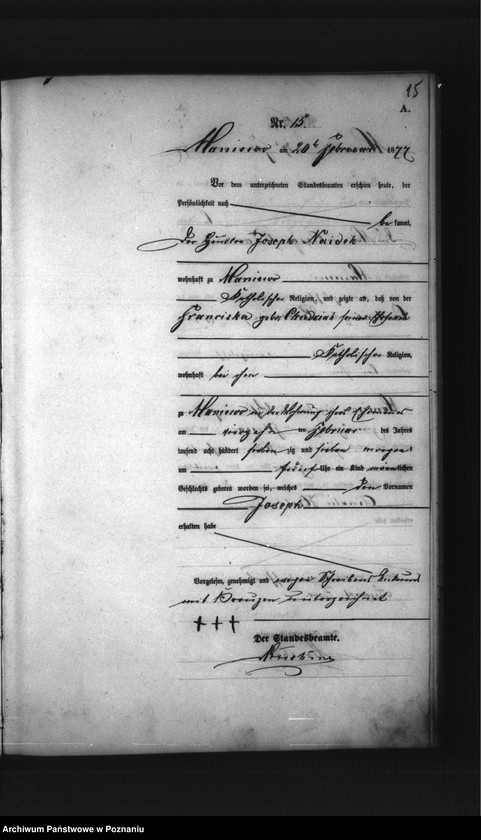 15
A.
Nr. 15.
Maniewo am 20t Februar 1877
Vor dem unterzeichneten Standesbeamten erschien heute, der
Persönlichkeit nach
be kannt,
der Häusler Joseph Naidek
wohnhaft zu Maniewo
Katholischer Religion, und zeigte an, daß von der
Franciska geb. seiner Ehefrau
Katholischer Religion,
wohnhaft bei ihm
zu Maniewo in der Wohnung ihres Ehemannes
am vierzehn ten Februar des Jahres
tausend acht hundert sieben zig und sieben morgens
um fünf Uhr ein Kind männlichen
Geschlechts geboren worden sei, welches den Vornamen
Joseph
erhalten habe
Vorgelesen, genehmigt und wegen Schreibens Unkunde
mit Kreuzen unterzeichnet
+++
Der Standesbeamte.
Archiwum Państwowe w Poznaniu